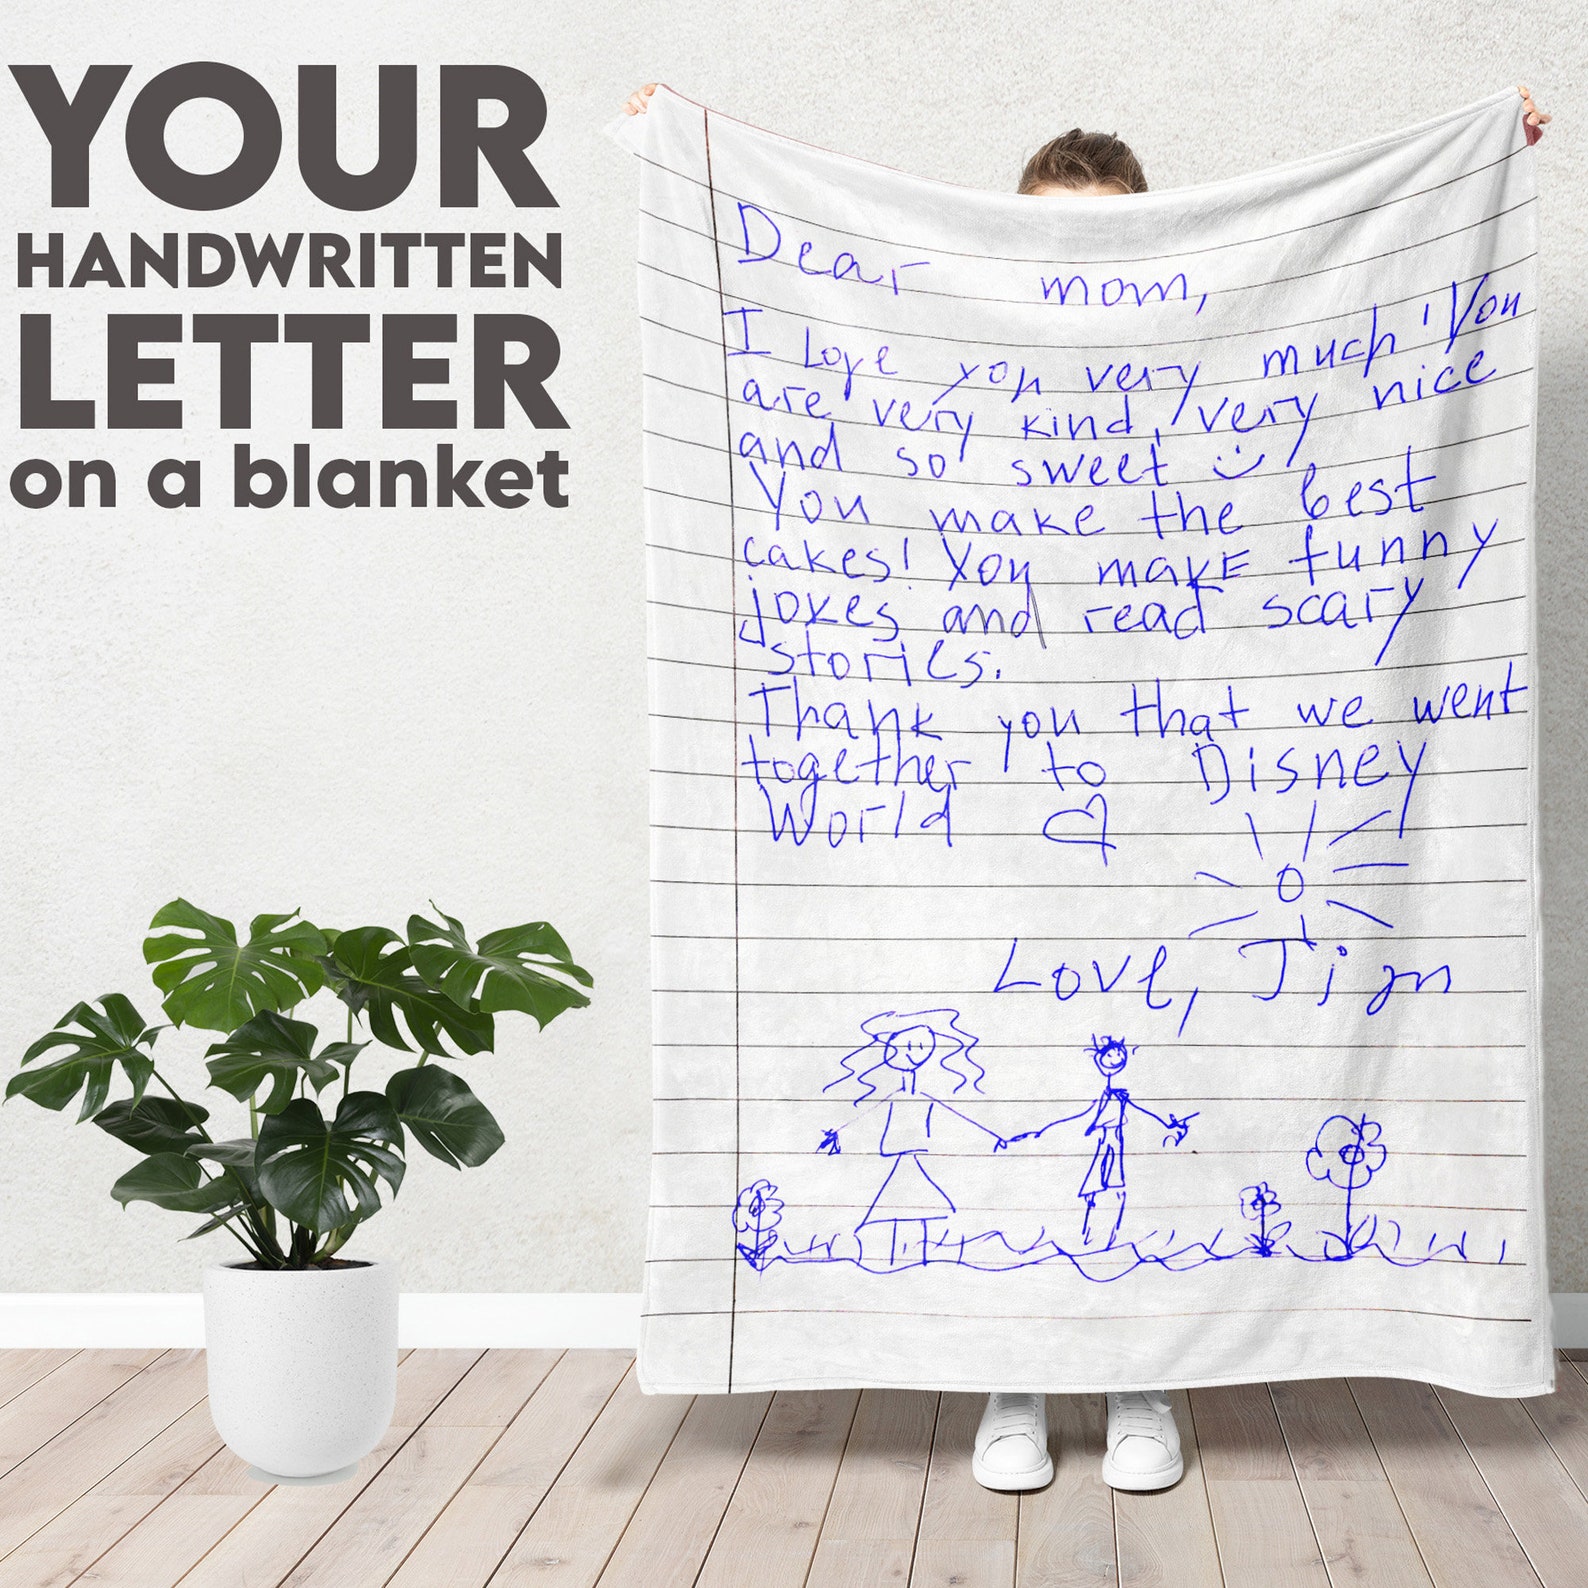 YOUR
HANDWRITTEN
LETTER
on a blanket
Dear mom,
I Love you very much! You
are very kind, very nice
and so sweet
You make the best
cakes! You makE funny
jokes and read scary
stories.
Thank you that we went
together to Disney
World
Love,